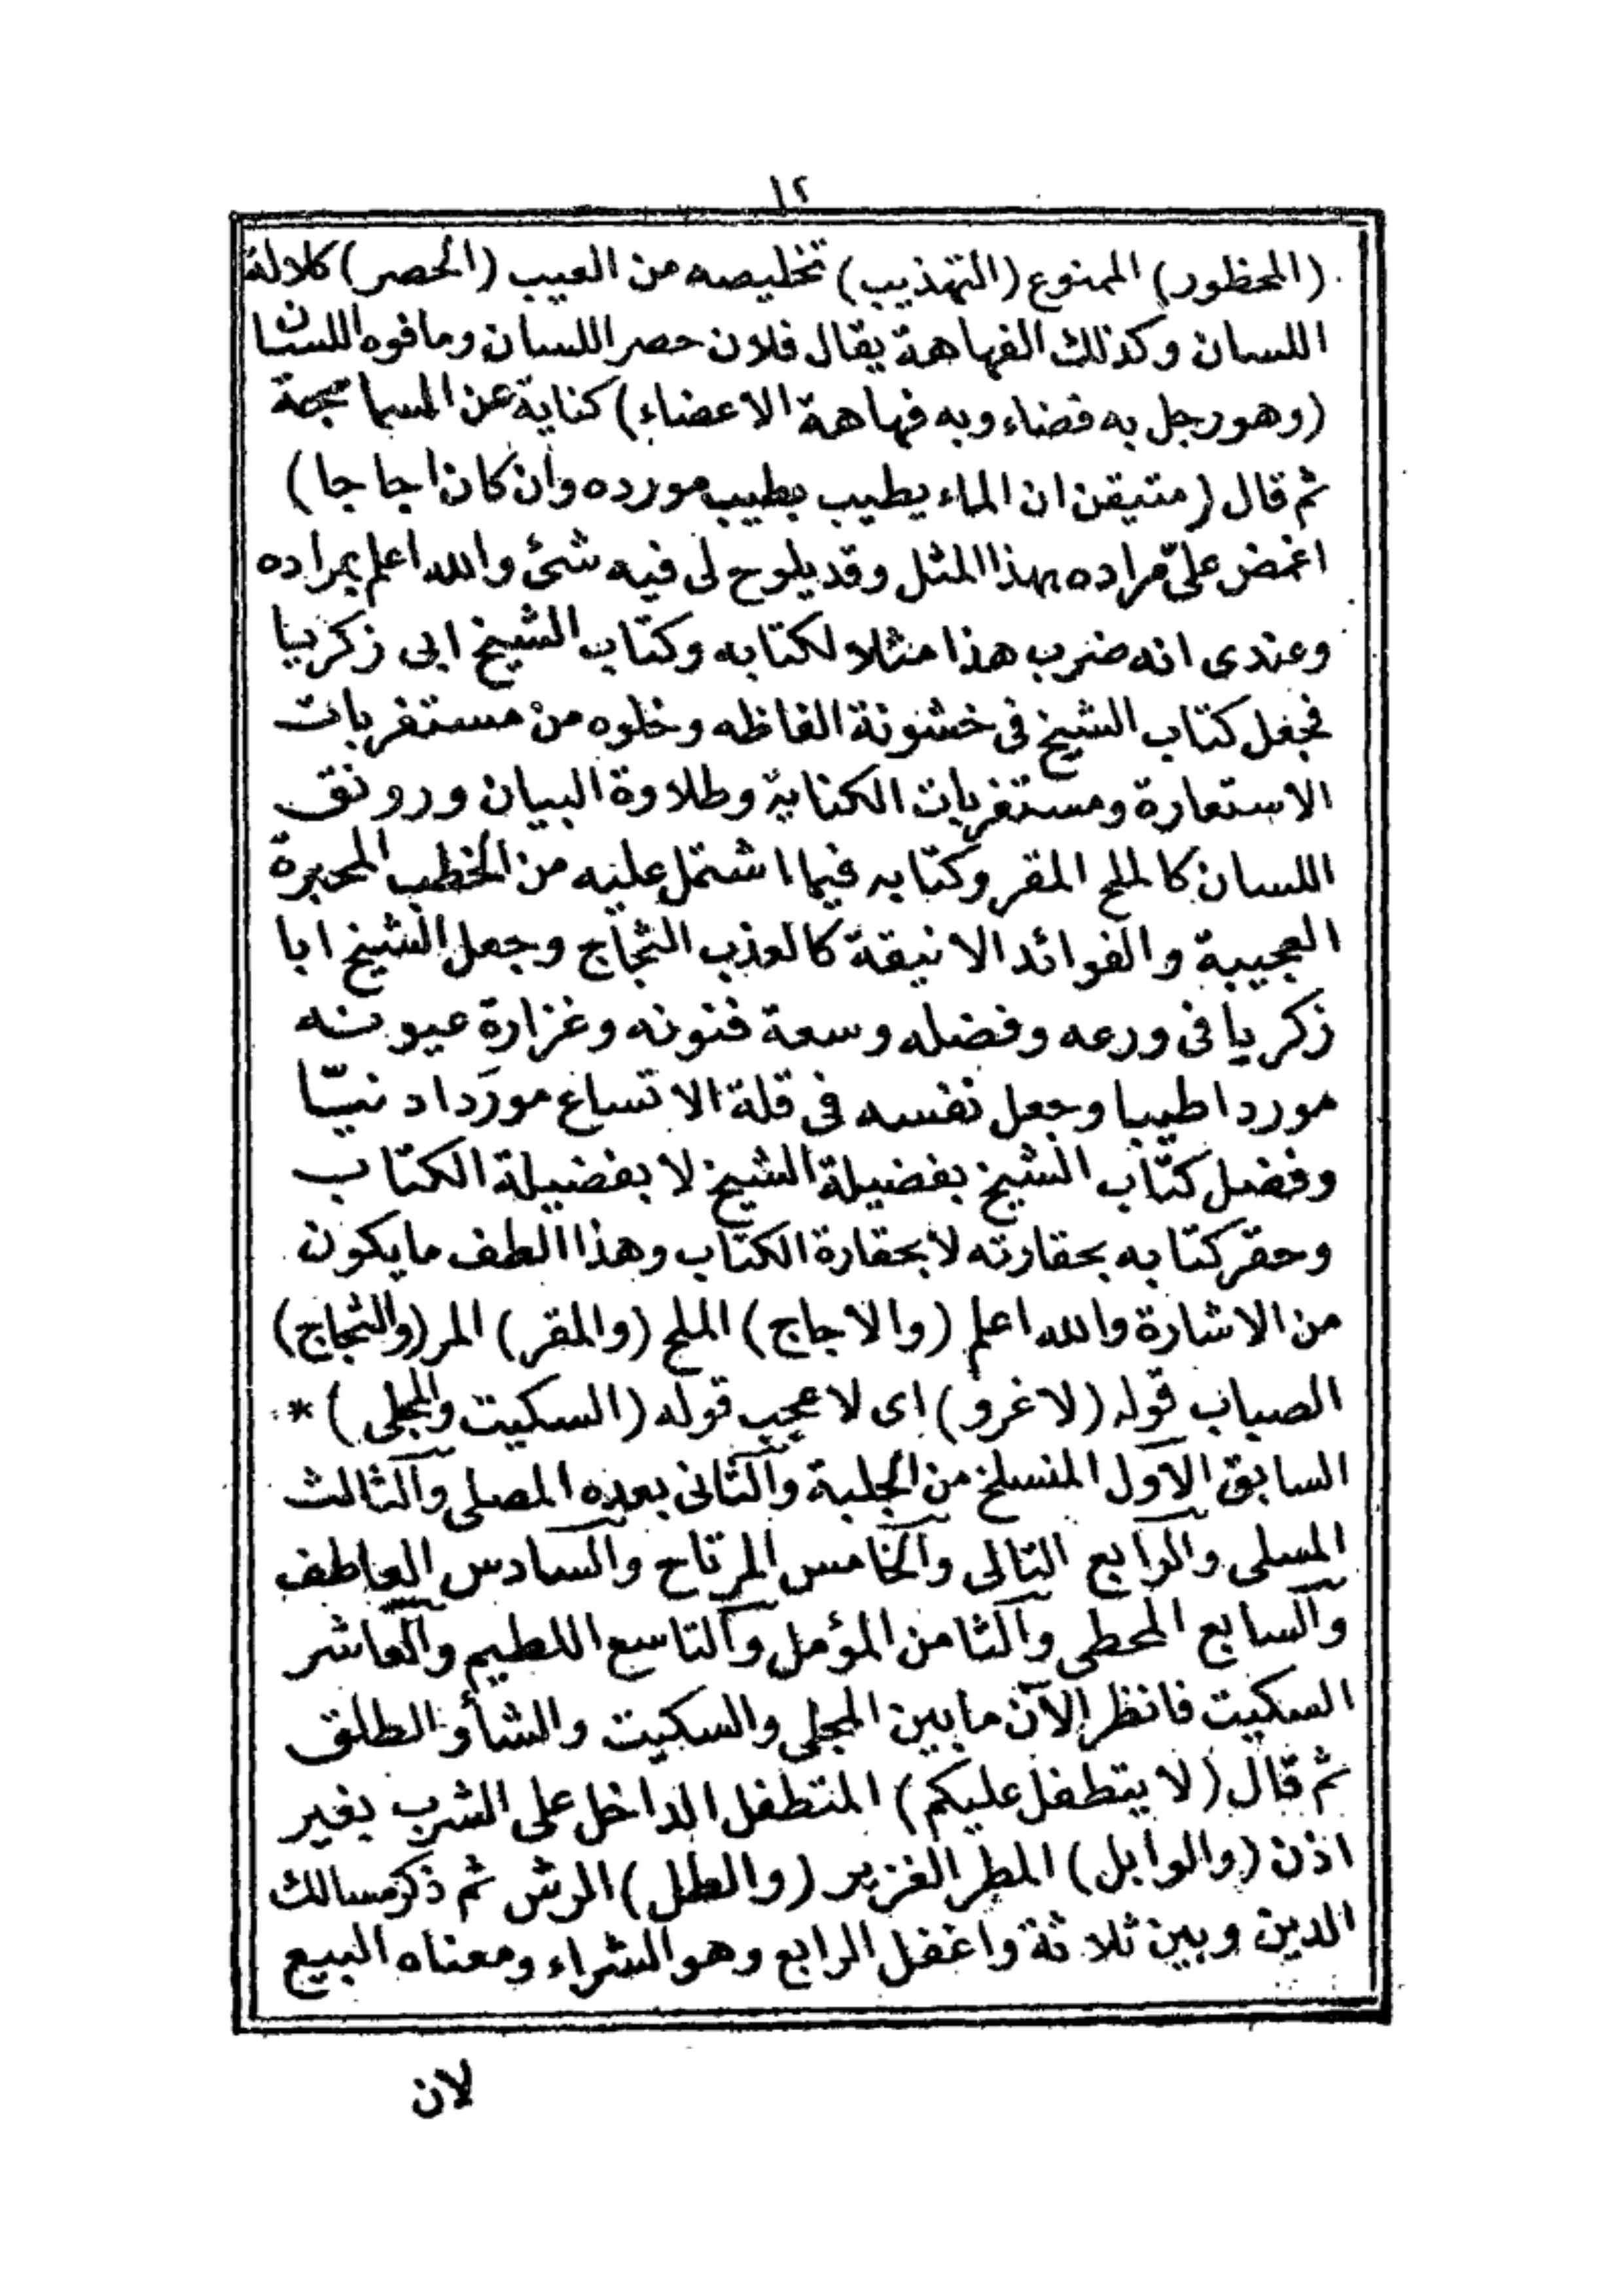 ١٢
(المحظور) الممنوع (التهذيب) تخليصه من العيب (الحصر) كلالة
اللسان وكذلك الفهاهة يقال فلان حصر اللسان وما فوه اللسان
(وهو رجل به فضاء وبه فهاهة الاعضاء) كناية عن المسماجمة
ثم قال (متيقن ان الماء يطيب بطيب مورده وان كان اجاجا)
اغمض علىّ مراده بهذا المثل وقد يلوح لى فيه شئ والله اعلم بمراده
وعندى انه ضرب هذا مثلا لكتابه وكتاب الشيخ ابى زكريا
فجعل كتاب الشيخ فى خشونة الفاظه وخلوه من مستغربات
الاستعارة ومستغربات الكناية وطلاوة البيان ورونق
اللسان كالملح المقر وكتابه فيما اشتمل عليه من الخطب المحبرة
العجيبة والفوائد الانيقة كالعذب الثجاج وجعل الشيخ ابا
زكريا فى ورعه وفضله وسعة فنونه وغزارة عيونه
موردا طيبا وجعل نفسه فى قلة الاتساع موردا دنيّا
وفضل كتاب الشيخ بفضيلة الشيخ لا بفضيلة الكتاب
وحقر كتابه بحقارته لا بحقارة الكتاب وهذا الطف ما يكون
من الاشارة والله اعلم (والاجاج) الملح (والمقر) المر (والثجاج)
الصباب قوله (لا غرو) اى لا عجب قوله (السكيت والمجلى) *
السابق الاول المنسلخ من الحلبة والثانى بعده المصلى والثالث
المسلى والرابع التالى والخامس المرتاح والسادس العاطف
والسابع المحظى والثامن المؤمل والتاسع اللطيم والعاشر
السكيت فانظر الآن ما بين المجلى والسكيت والشأو الطلق
ثم قال (لا يتطفل عليكم) المتطفل الداخل على الشرب بغير
اذن (والوابل) المطر الغزير (والطل) الرش ثم ذكر مسالك
الدين وبين ثلاثة واغفل الرابع وهو الشراء ومعناه البيع
لان